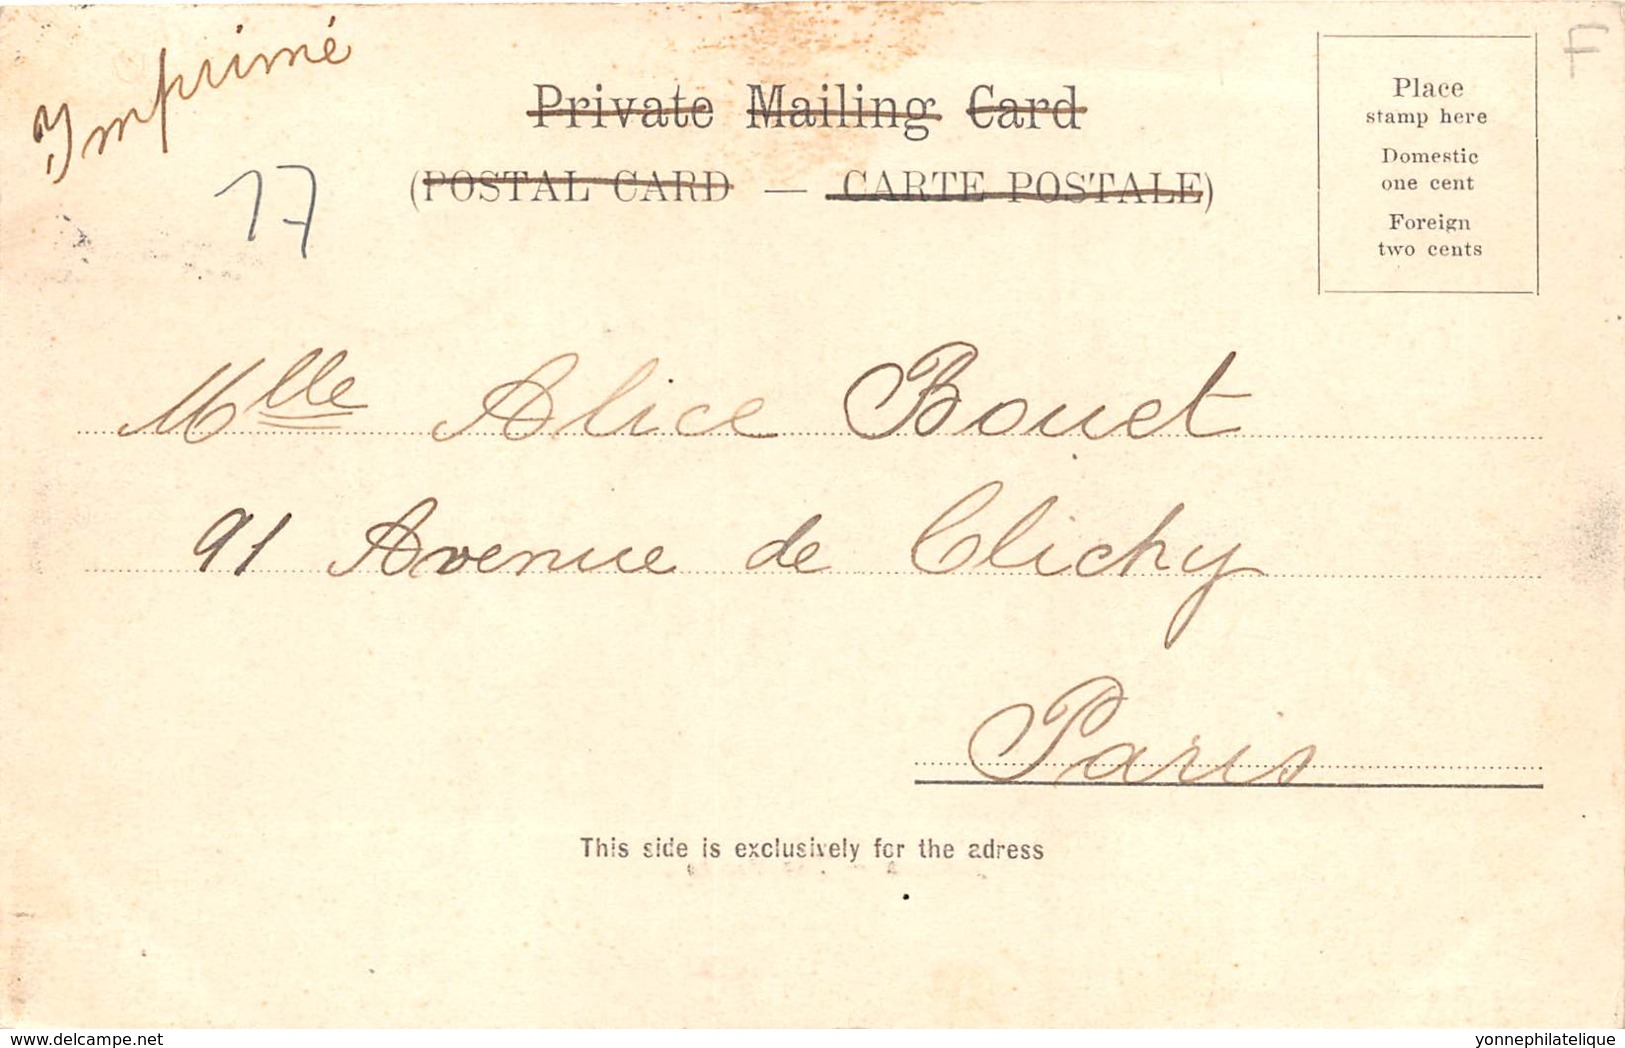 Imprimé
17
F
Private Mailing Card
(POSTAL CARD — CARTE POSTALE)
Place
stamp here
Domestic
one cent
Foreign
two cents
Mlle Alice Bouet
91 Avenue de Clichy
Paris
This side is exclusively for the adress
delcampe.net
yonnephilatelique